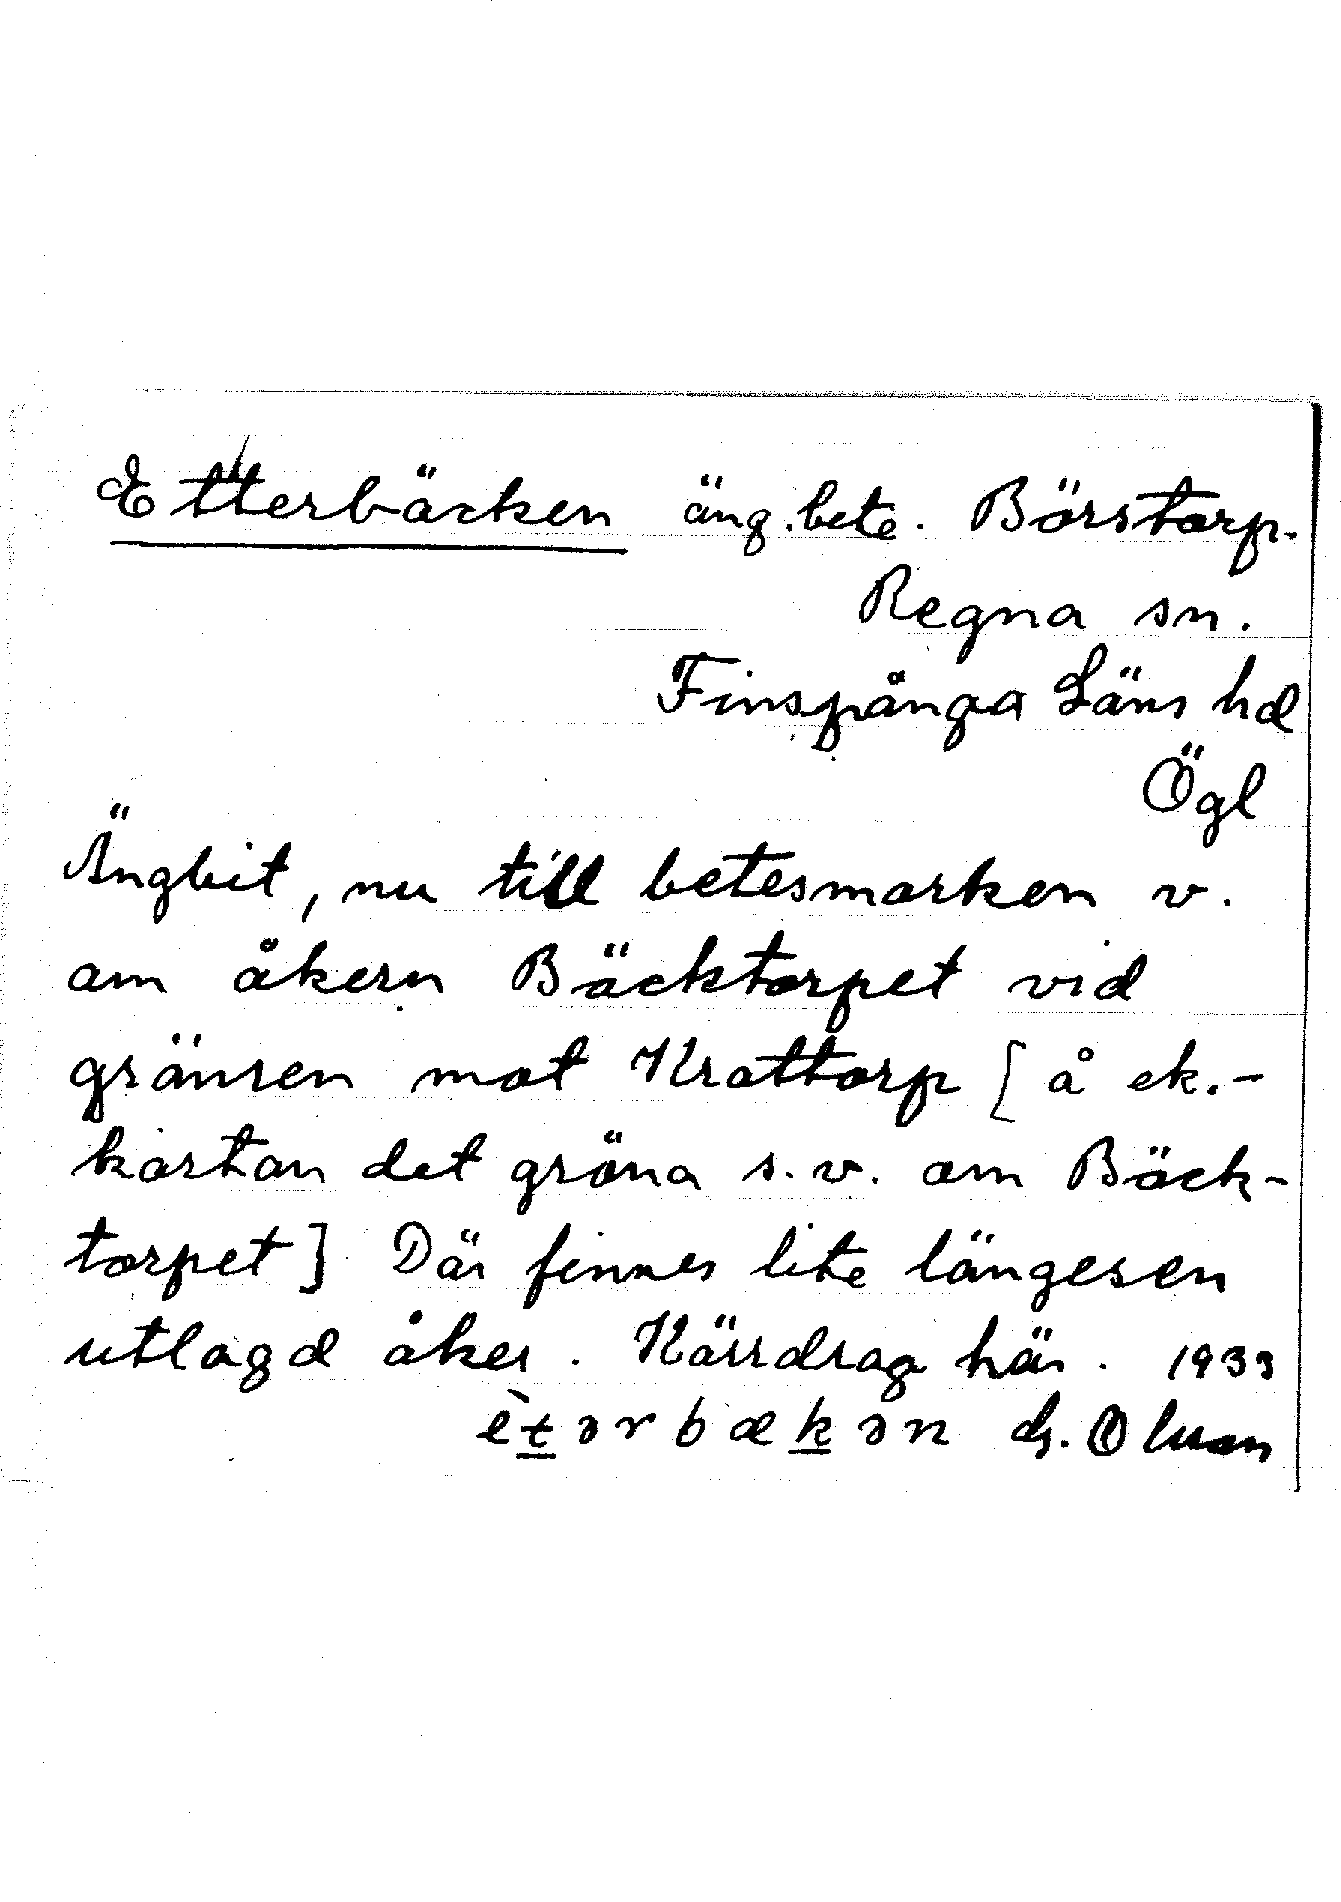 Etterbäcken äng. bete. Börstorp.
Regna sn.
Finspånga Läns hd
Ögl
Ängbit, nu till betesmarken v.
om åkern Bäcktorpet vid
gränsen mot Krattorp [å ek.-
kartan det gröna s.v. om Bäck-
torpet] Där finnes lite längesen
utlagd åker. Kärrdrag här. 1933
èṯərbæḵən